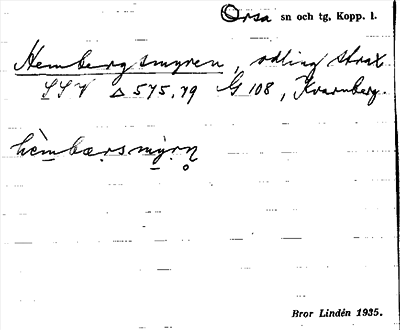 Orsa sn och tg, Kopp. l.
Hembergsmyren, odling strax
SSV △ 575,79 G 108, Kvarnberg.
hèm bæṛsmỳṛṇ
Bror Lindén 1935.